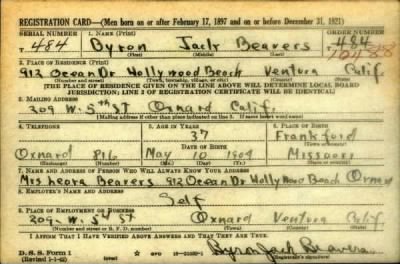 REGISTRATION CARD—(Men born on or after February 17, 1897 and on or before December 31, 1921)
SERIAL NUMBER 1. NAME (Print) ORDER NUMBER
T 484 Byron Jack Beavers 484
(First) (Middle) (Last)
2. PLACE OF RESIDENCE (Print)
912 Ocean Dr Hollywood Beach Ventura Calif.
(Number and street) (Town, township, village, or city) (County) (State)
[THE PLACE OF RESIDENCE GIVEN ON THE LINE ABOVE WILL DETERMINE LOCAL BOARD
JURISDICTION; LINE 2 OF REGISTRATION CERTIFICATE WILL BE IDENTICAL]
3. MAILING ADDRESS
209 W. 5th St Oxnard Calif.
[Mailing address if other than place indicated on line 2. If same insert word same]
4. TELEPHONE 5. AGE IN YEARS 6. PLACE OF BIRTH
37 Frankford
DATE OF BIRTH (Town or county)
Oxnard May 10 1904 Missouri
(Exchange) (Number) (Mo.) (Day) (Yr.) (State or country)
7. NAME AND ADDRESS OF PERSON WHO WILL ALWAYS KNOW YOUR ADDRESS
Mrs Leora Beavers 912 Ocean Dr Hollywood Beach Oxnard
8. EMPLOYER'S NAME AND ADDRESS
Self
9. PLACE OF EMPLOYMENT OR BUSINESS
209 W. 5th St Oxnard Ventura Calif
(Number and street or R. F. D. number) (Town) (County) (State)
I AFFIRM THAT I HAVE VERIFIED ABOVE ANSWERS AND THAT THEY ARE TRUE.
D. S. S. Form 1 Byron Jack Beavers
(Revised 1-1-42) (over) (Registrant's signature)